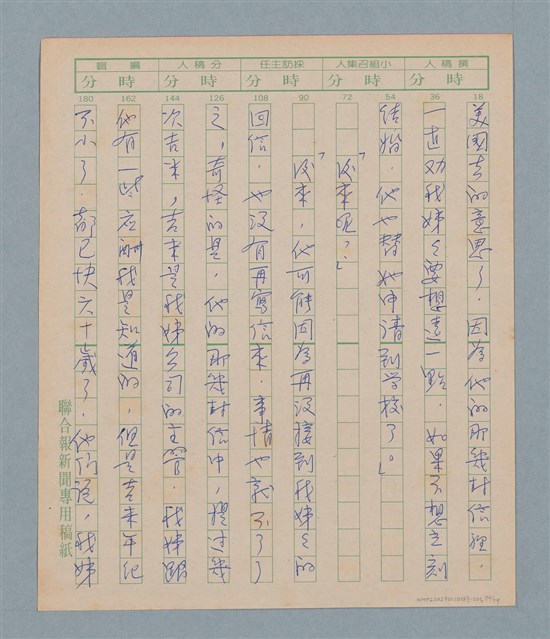 撰稿人 小組召集人 採訪主任 分稿人 編輯
時 分 時 分 時 分 時 分 時 分
18 36 54 72 90 108 126 144 162 180
美国去的意思了．因為他的那幾封信裡．
一直劝我姊々要想遠一點．如果不想立刻
结婚．他也替她申请到学校了。」
「後來呢？」
「後來，他可能因為再没接到我姊々的
回信．也没有再寫信來．事情也就不了了
之，奇怪的是．他的那幾封信中，提过幾
次吉米，吉米是我姊公司的主管．我姊跟
他有一些应酬我是知道的，但是吉米年纪
不小了．都已快六十歲了．他们说，我姊
聯合報新聞專用稿紙